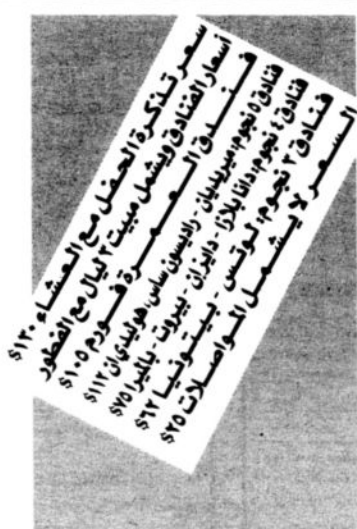 سعر تذكرة الحفل مع العشاء ١٢٠$
أسعار الفنادق ويشمل مبيت ٢ ليال مع الفطور
فندق العمرة فورم ١٠٥$
فنادق ٥ نجوم، ميريديان - راديسون ساس، هوليدي ان ١١٢$
فنادق ٤ نجوم، دانا بلازا - دايزان - بيروت - بالميرا ٧٥$
فنادق ٣ نجوم، لوتس - بيتونيا ٦٢$
السعر لا يشمل المواصلات ٢٥$